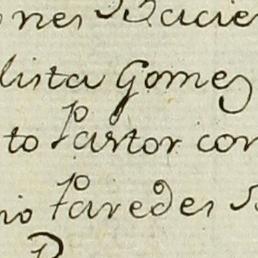 nes Bacie
lista Gomez
to Pastor con
nio Paredes